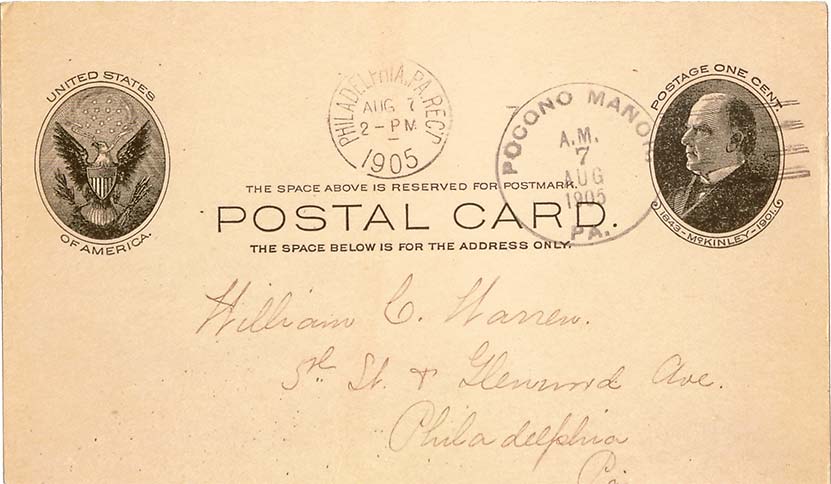 UNITED STATES
OF AMERICA.
PHILADELPHIA, PA. REC'D
AUG 7
2-PM
1905
POCONO MANOR
A.M.
7
AUG
1905
PA.
POSTAGE ONE CENT.
1843-McKINLEY-1901.
THE SPACE ABOVE IS RESERVED FOR POSTMARK.
POSTAL CARD.
THE SPACE BELOW IS FOR THE ADDRESS ONLY.
William C. Warren.
5th St. & Glenwood Ave.
Philadelphia
Pa